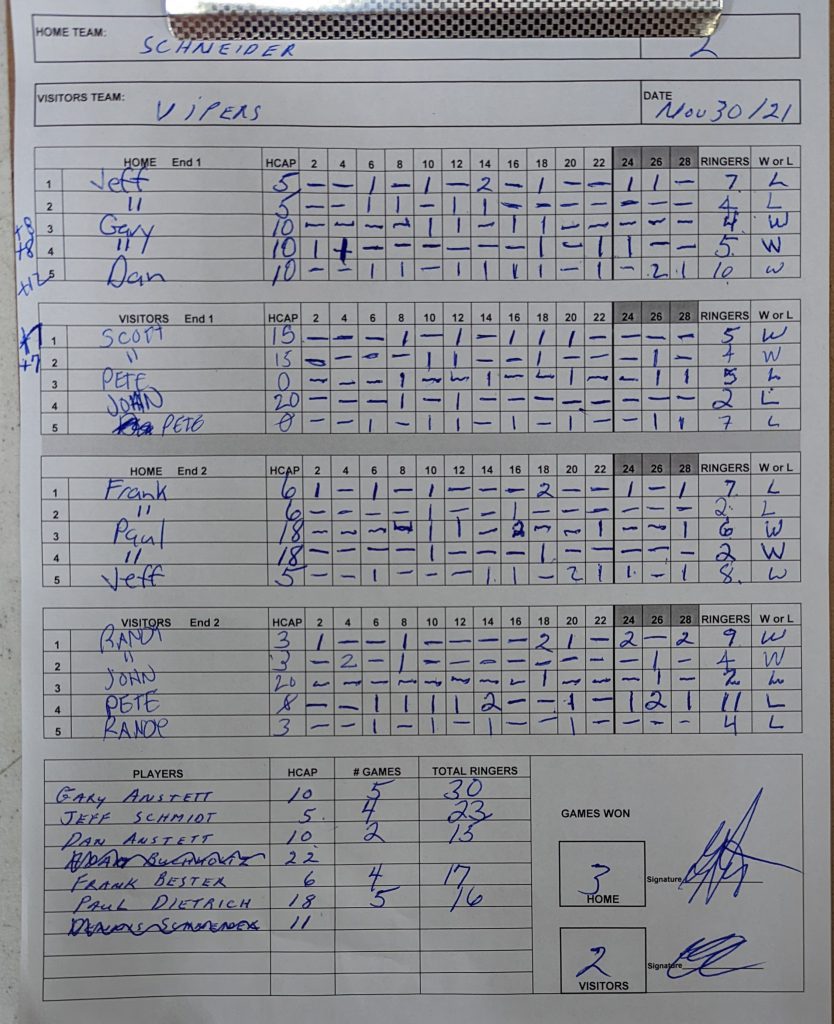 HOME TEAM: SCHNEIDER 2
VISITORS TEAM: VIPERS DATE Nov 30/21
HOME End 1 HCAP 2 4 6 8 10 12 14 16 18 20 22 24 26 28 RINGERS W or L
1 Jeff 5 – – 1 – 1 – 2 – 1 – – 1 1 – 7 L
2 " 5 – – 1 1 – 1 1 – – – – – – – 4 L
+8 3 Gary 10 – – – – 1 1 – 1 1 – – – – – 4 W
+8 4 " 10 1 1 – – – – – – 1 – 1 1 – – 5 W
+12 5 Dan 10 – – 1 1 – 1 1 1 1 – 1 – 2 1 10 W
VISITORS End 1 HCAP 2 4 6 8 10 12 14 16 18 20 22 24 26 28 RINGERS W or L
+7 1 SCOTT 15 – – – 1 – 1 – 1 1 1 – – – – 5 W
+7 2 " 15 – – – – 1 1 – – 1 – – – 1 – 4 W
3 PETE 0 – – – 1 – – 1 – – 1 – – 1 1 5 L
4 JOHN 20 – – – 1 – 1 – – – – – – – – 2 L
5 PETE 0 – – 1 – 1 1 – 1 – 1 – – 1 1 7 L
HOME End 2 HCAP 2 4 6 8 10 12 14 16 18 20 22 24 26 28 RINGERS W or L
1 Frank 6 1 – 1 – 1 – – – 2 – – 1 – 1 7 L
2 " 6 – – – – 1 – – 1 – – – – – – 2 L
3 Paul 18 – – – – 1 1 – 2 – – 1 – – 1 6 W
4 " 18 – – – – 1 – – – 1 – – – – – 2 W
5 Jeff 5 – – 1 – – – 1 1 – 2 1 1 – 1 8 W
VISITORS End 2 HCAP 2 4 6 8 10 12 14 16 18 20 22 24 26 28 RINGERS W or L
1 RANDY 3 1 – – 1 – – – – 2 1 – 2 – 2 9 W
2 " 3 – 2 – 1 – – – – – – – – 1 – 4 W
3 JOHN 20 – – – – – – – – 1 – – – 1 – 2 L
4 PETE 8 – – 1 1 1 1 2 – – 1 – 1 2 1 11 L
5 RANDY 3 – – 1 – 1 – 1 – – 1 – – – – 4 L
PLAYERS HCAP # GAMES TOTAL RINGERS
GARY ANSTETT 10 5 30
JEFF SCHMIDT 5 4 23
DAN ANSTETT 10 2 15
22
FRANK BESTER 6 4 17
PAUL DIETRICH 18 5 16
11
GAMES WON
3
HOME
Signature
2
VISITORS
Signature